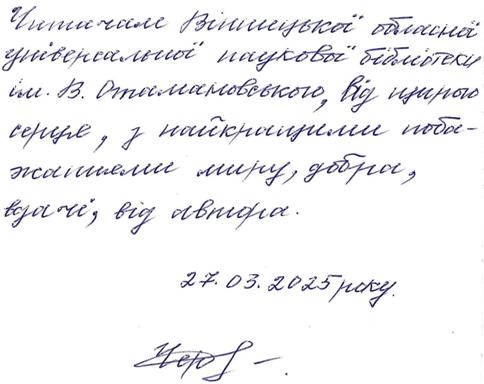 Читачам Вінницької обласної
універсальної наукової бібліотеки
ім. В. Отамановського, від щирого
серця, з найкращими поба-
жаннями миру, добра,
вдачі, від автора.
27.03.2025 року.